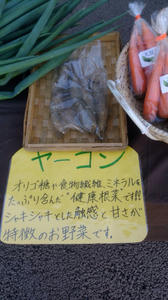 ヤーコン
オリゴ糖や食物繊維、ミネラルを
たっぷり含んだ"健康根菜"です!!
シャキシャキとした触感と甘さが
特徴のお野菜です。